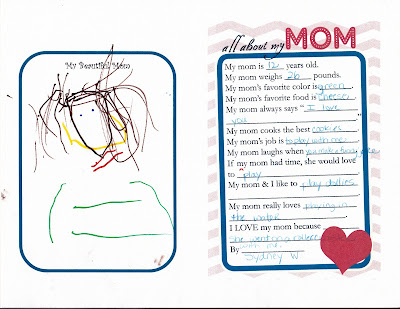 My Beautiful Mom
all about my MOM
My mom is 12 years old.
My mom weighs 26 pounds.
My mom's favorite color is green.
My mom's favorite food is cheese.
My mom always says "I love
you
My mom cooks the best cookies.
My mom's job is to play with me.
My mom laughs when
If my mom had time, she would love
to play.
My mom & I like to play dollies
My mom really loves playing in
the water.
I LOVE my mom because
she went on a
with me.
By Sydney W